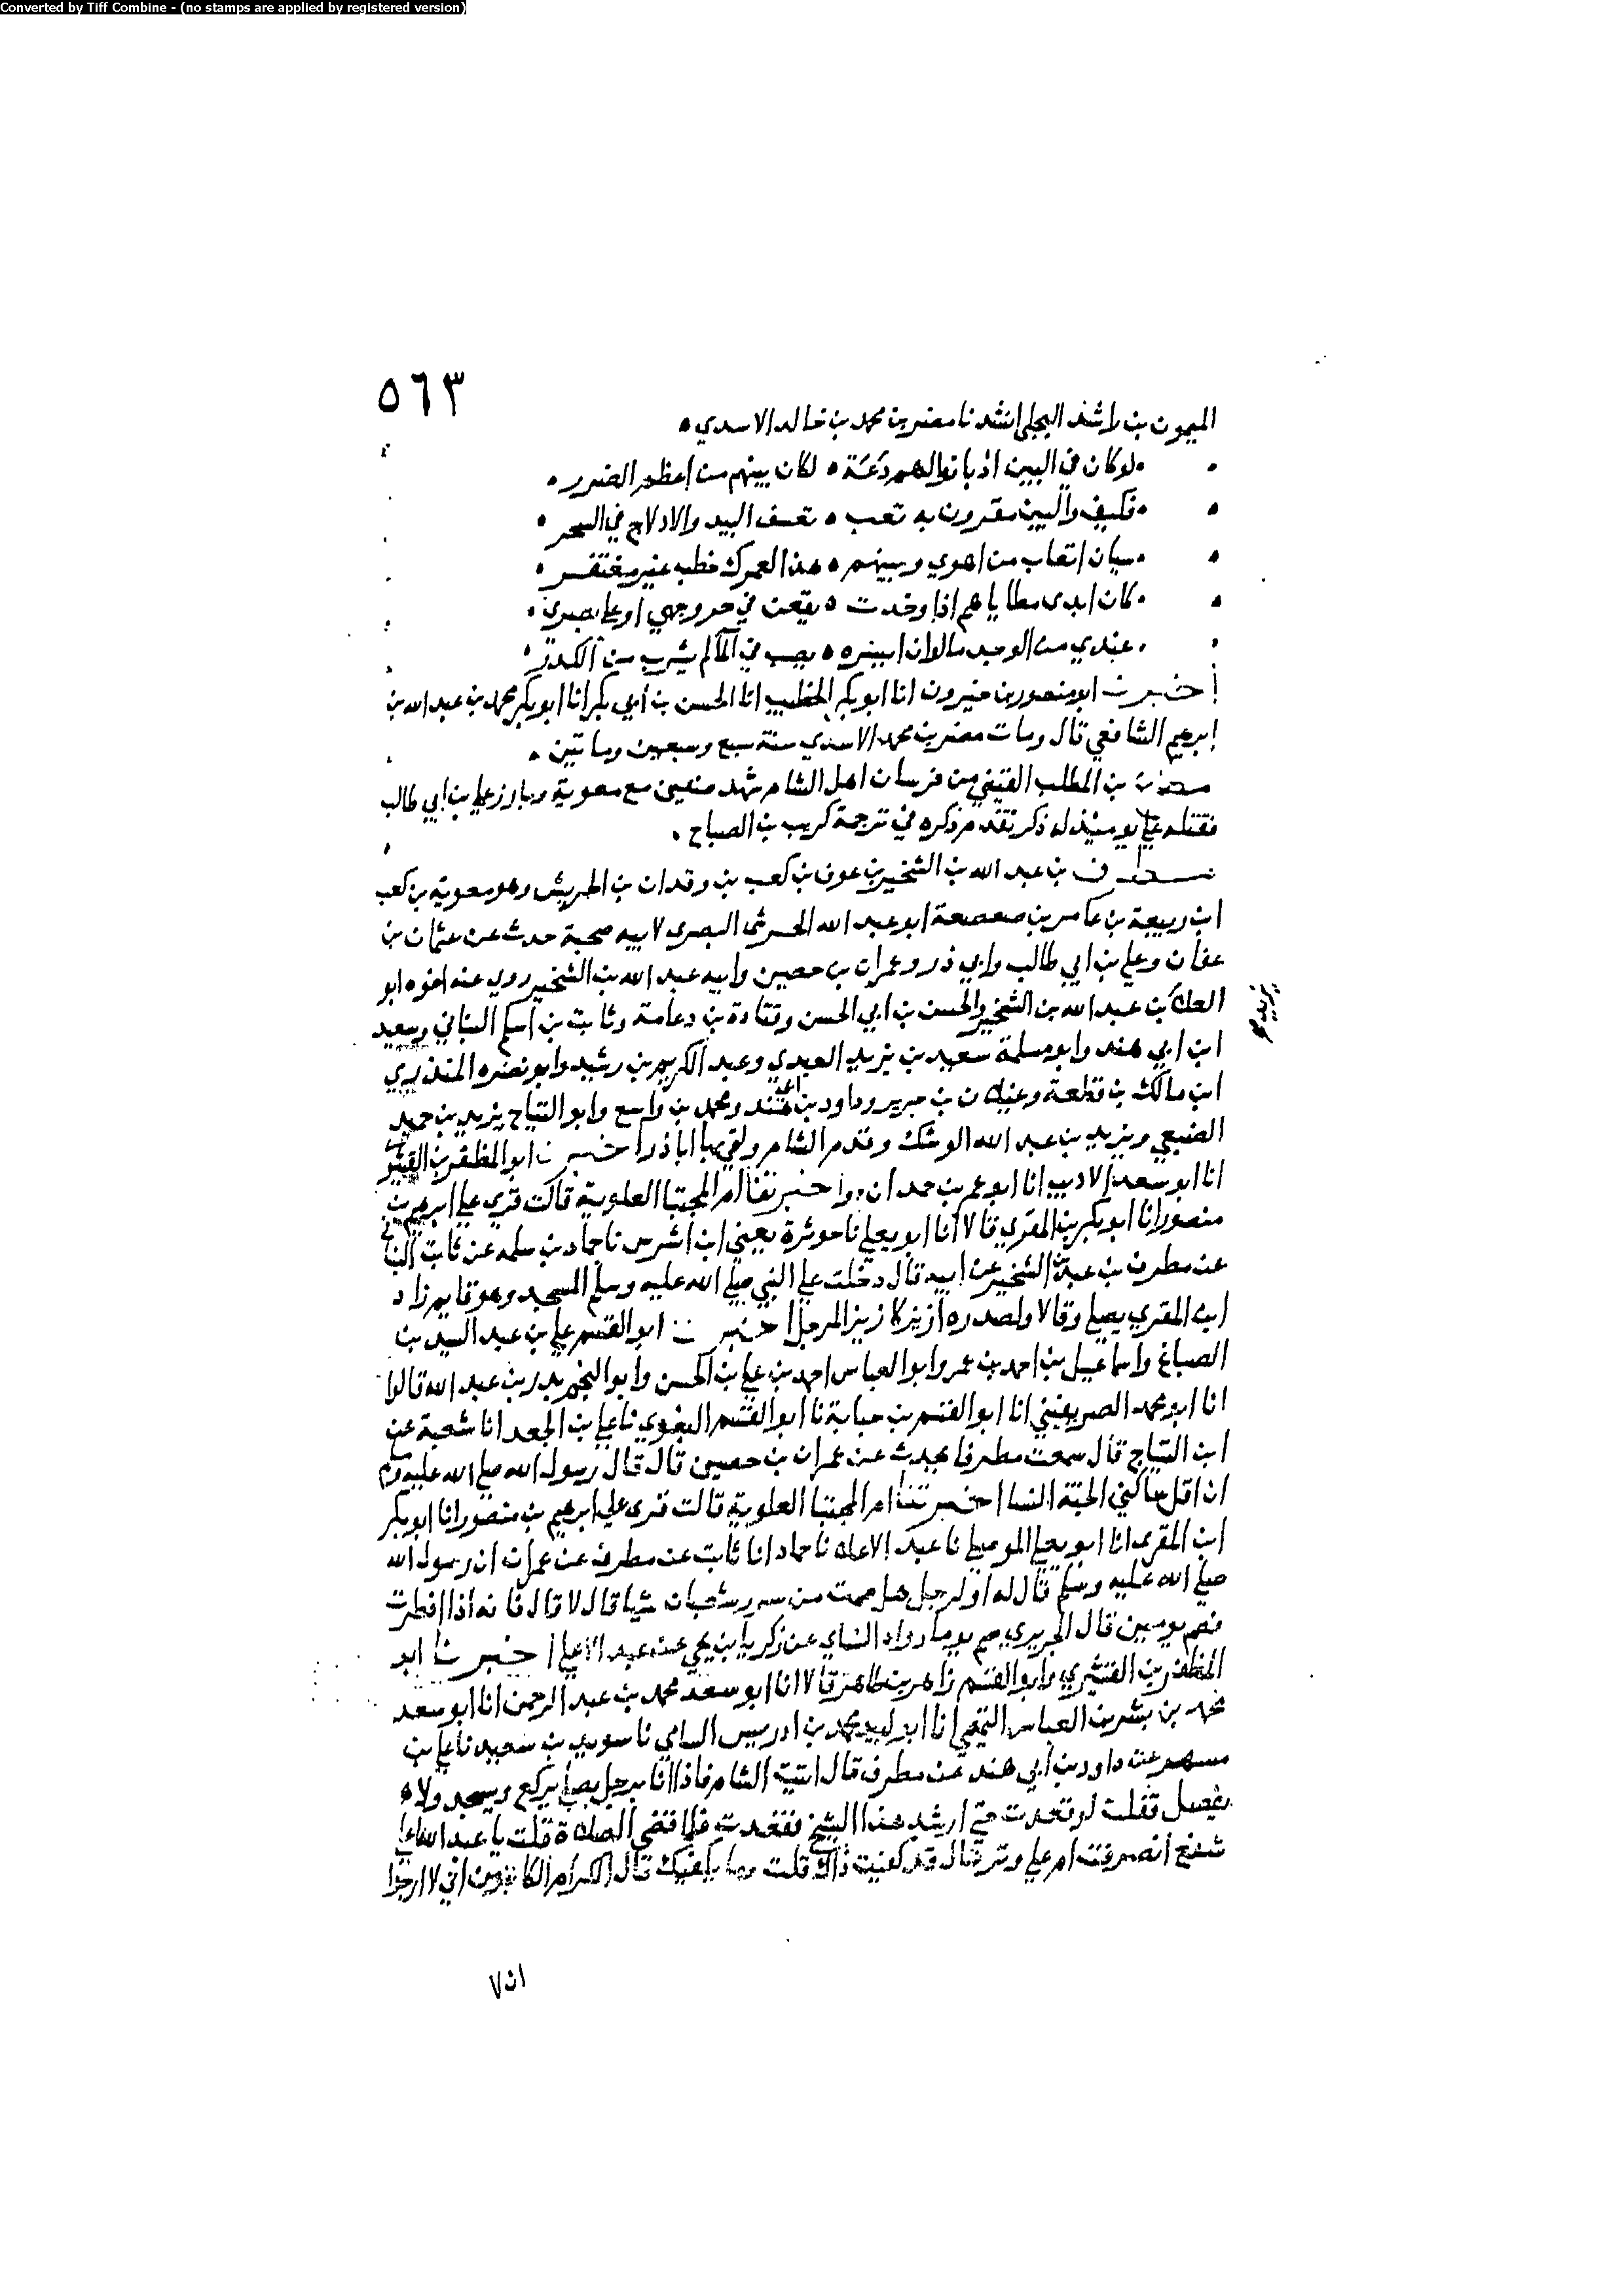 Converted by Tiff Combine - (no stamps are applied by registered version)
٥٦٣
الميمون بن راشد البجلي انشدنا مضر بن محمد بن خالد الاسدي
لو كان في البين اذ بانوا لهم دعة لكان بينهم من اعظم الضرر
فكيف والبين مقرون به تعب تعسف البيد والادلاج في السحر
سيان اتعاب من اهوي وبينهم هذا لعمرك خطب غير مغتفر
كان ايدي مطاياهم اذا وخدت يقعن في حر وجهي او علي بصري
عندي من الوجد ما لو ان
اخبرنا ابو منصور بن خيرون انا ابو بكر الخطيب انا الحسن بن ابي بكر انا ابو بكر محمد بن عبد الله بن
ابرهيم الشافعي قال ومات مضر بن محمد الاسدي سنة سبع وسبعين وماتين
بن المطلب القيني من فرسان اهل الشام شهد صفين مع معوية وبارز علي بن ابي طالب
فقتله علي يومئذ له ذكر تقدم ذكره في ترجمة كريب بن الصباح
مطرف بن عبد الله بن الشخير بن عوف بن كعب بن وقدان بن الحريش وهو معوية بن كعب
ابن ربيعة بن عامر بن صعصعة ابو عبد الله الحرشي البصري لابيه صحبة حدث عن عثمان بن
عفان وعلي بن ابي طالب وابي ذر وعمران بن حصين وابيه عبد الله بن الشخير روي عنه اخوه ابو
العلا بن عبد الله بن الشخير والحسن بن ابي الحسن وقتادة بن دعامة وثابت بن اسلم البناني وسعيد
يزيد
ابن ابي هند وابو مسلمة سعيد بن يزيد العبدي وعبد الكريم بن رشيد وابو نضره المنذري
ابن مالك بن قطعة وغيلان بن جرير وداود بن ابي هند ومحمد بن واسع وابو التياح يزيد بن حميد
الضبعي ويزيد بن عبد الله الوشك وقدم الشام ولقي بها اباذر اخبرنا ابو المظفر بن القشيري
انا ابو سعد الاديب انا ابو عمر بن حمدان واخبرتنا ام المجتبا العلوية قالت قري علي ابرهيم بن
منصور انا ابو بكر بن المقري قالا انا ابو يعلي نا حوثرة يعني ابن اشرس نا حماد بن سلمه عن ثابت البناني
عن مطرف بن عبد الله بن الشخير عن ابيه قال دخلت علي النبي صلي الله عليه وسلم المسجد وهو قايم زاد
ابن المقري يصلي وقالا ولصدره ازيز كازيز المرجل اخبرنا ابو القسم علي بن عبد السيد بن
الصباغ واسماعيل بن احمد بن عمر وابو العباس احمد بن علي بن الحسن وابو النجم بدر بن عبد الله قالوا
انا ابو محمد الصريفيني انا ابو القسم بن حبابة نا ابو القسم البغوي نا علي بن الجعد انا شعبة عن
ابن التياح قال سمعت مطرفا يحدث عن عمران بن حصين قال قال رسول الله صلي الله عليه وسلم
ان اقل ساكني الجنة النسا اخبرتنا ام المجتبا العلوية قالت قري علي ابرهيم بن منصور انا ابو بكر
ابن المقري انا ابو يعلي الموصلي نا عبد الاعلا نا حماد انا ثابت عن مطرف عن عمران ان رسول الله
صلي الله عليه وسلم قال له او لرجل هل صمت من سرر شعبان شيا قال لا قال فانه اذا افطرت
فصم يومين قال الجريري صم يوما رواه النساي عن زكريا بن يحي عن عبد الاعلي اخبرنا ابو
المظفر بن القشيري وابو القسم زاهر بن طاهر قالا انا ابو سعد محمد بن عبد الرحمن انا ابو سعد
محمد بن بشر بن العباس التميمي انا ابو لبيد محمد بن ادريس السامي نا سويد بن سعيد نا علي بن
مسهر عن داود بن ابي هند عن مطرف قال اتيت الشام فاذا انا برجل يصلي يركع ويسجد ولا
يفصل فقلت لو قعدت حتي ارشد هذا الشيخ فقعدت فلما قضي الصلاة قلت يا عبد الله اعلي
شفع انصرفت ام علي وتر قال قد كفيت ذاك قلت وما يكفيك قال الكرام الكاتبون اني لا ارجوا